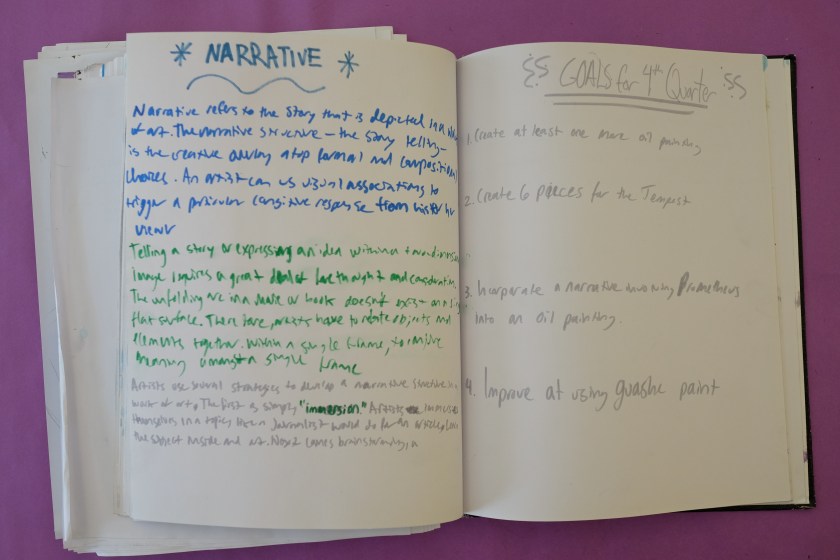 * NARRATIVE *
Narrative refers to the story that is depicted in a
of art. The narrative structure – the story telling –
is the creative overlay atop formal and compositional
choices. An artist can us visual associations to
trigger a particular cognitive response from his or her
viewr
Telling a story or expressing an idea within a two dimens
image requires a great deal of for thought and consideration.
The unfolding arc in a movie or books doesn't exist on a
flat surface. There fore, artists have to relate objects and
elements together. Within a single frame, to
meaning amongst a single frame
Artists use several strategies to develop a narrative structure in
work of art. The first is simply "immersion." Artists
themselves in a topic like a Journalist would do for an article
the subject inside and out. Next comes brainstorming, a
GOALS for 4th Quarter
1. Create at least one more oil painting
2. Create 6 pieces for the Tempest
3. Incorparate a narrative involving Prometheus
into an oil painting.
4. Improve at using guashe paint